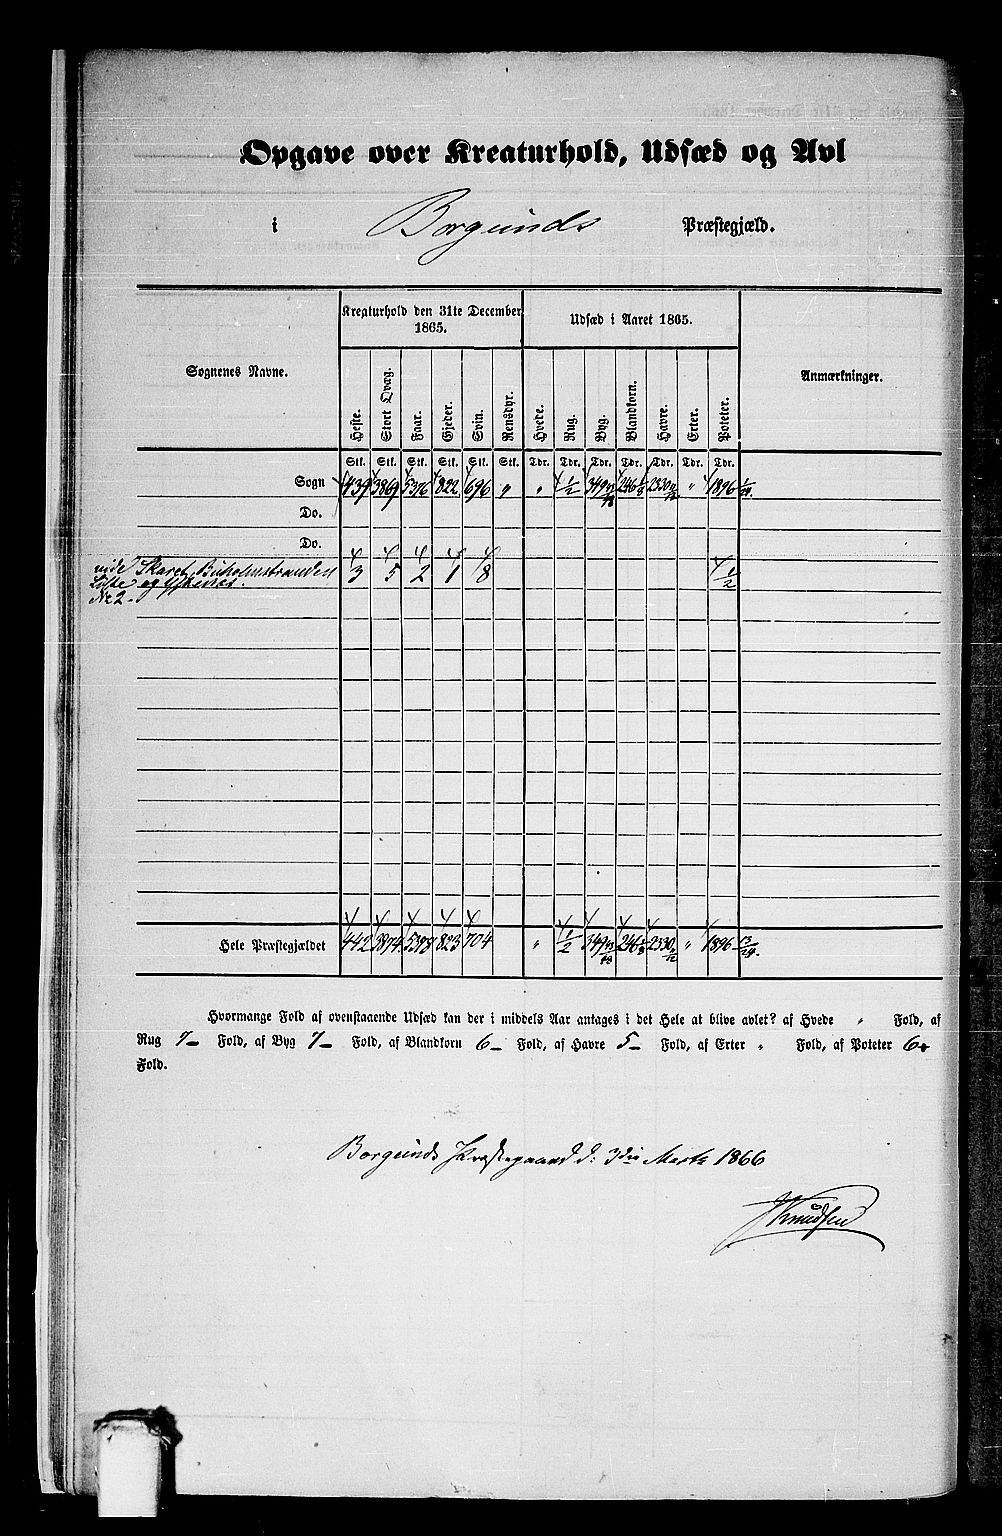 Opgave over Kreaturhold, Udsæd og Avl
i Borgunds Præstegjæld.
Sognenes Navne. Kreaturhold den 31te December 1865. Udsæd i Aaret 1865. Anmærkninger.
Heste. Stort Qvæg. Faar. Gjeder. Svin. Rensdyr. Hvede. Rug. Byg. Blandkorn. Havre. Erter. Poteter.
Stk. Stk. Stk. Stk. Stk. Stk. Tdr. Tdr. Tdr. Tdr. Tdr. Tdr. Tdr.
Sogn 439 3869 5376 822 696 „ „ 1/2 349 246 2330 „ 1896 1/24
Do.
Do.
vide Skaret, Buholmstranden 3 5 2 1 8 1/2
Liste og
No 2.
Hele Præstegjældet 442 3874 5378 823 704 „ 1/2 349 246 2330 „ 1896 13/24.
Hvormange Fold af ovenstaaende Udsæd kan der i middels Aar antages i det Hele at blive avlet? af Hvede „ Fold, af
Rug 7 Fold, af Byg 7 Fold, af Blandkorn 6 Fold, af Havre 5 Fold, af Erter „ Fold, af Poteter 6
Fold.
Borgunds Præstegaard d: 3die Marts 1866
Knudsen